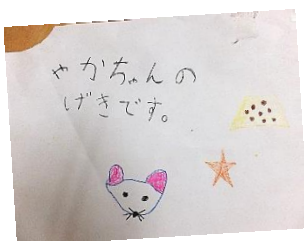 やかちゃんの
げきです。